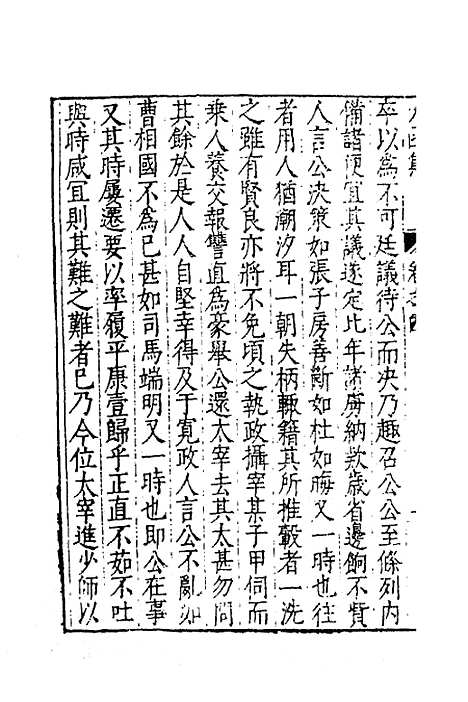 卒以為不可廷議待公而決乃趣召公公至條列内
備諸便宜其議遂定比年諸虜納款歲省邊餉不貲
人言公決策如張子房善斷如杜如晦又一時也往
者用人猶潮汐耳一朝失柄輙籍其所推轂者一洗
之雖有賢良亦將不免頃之執政攝宰某子甲伺而
乗人養交報讐直為豪舉公還太宰去其太甚勿問
其餘於是人人自堅幸得及于寛政人言公不亂如
曹相國不為已甚如司馬端明又一時也即公在事
又其時屢遷要以率履平康壹歸乎正直不茹不吐
與時咸宜則其難之難者已乃今位太宰進少師以